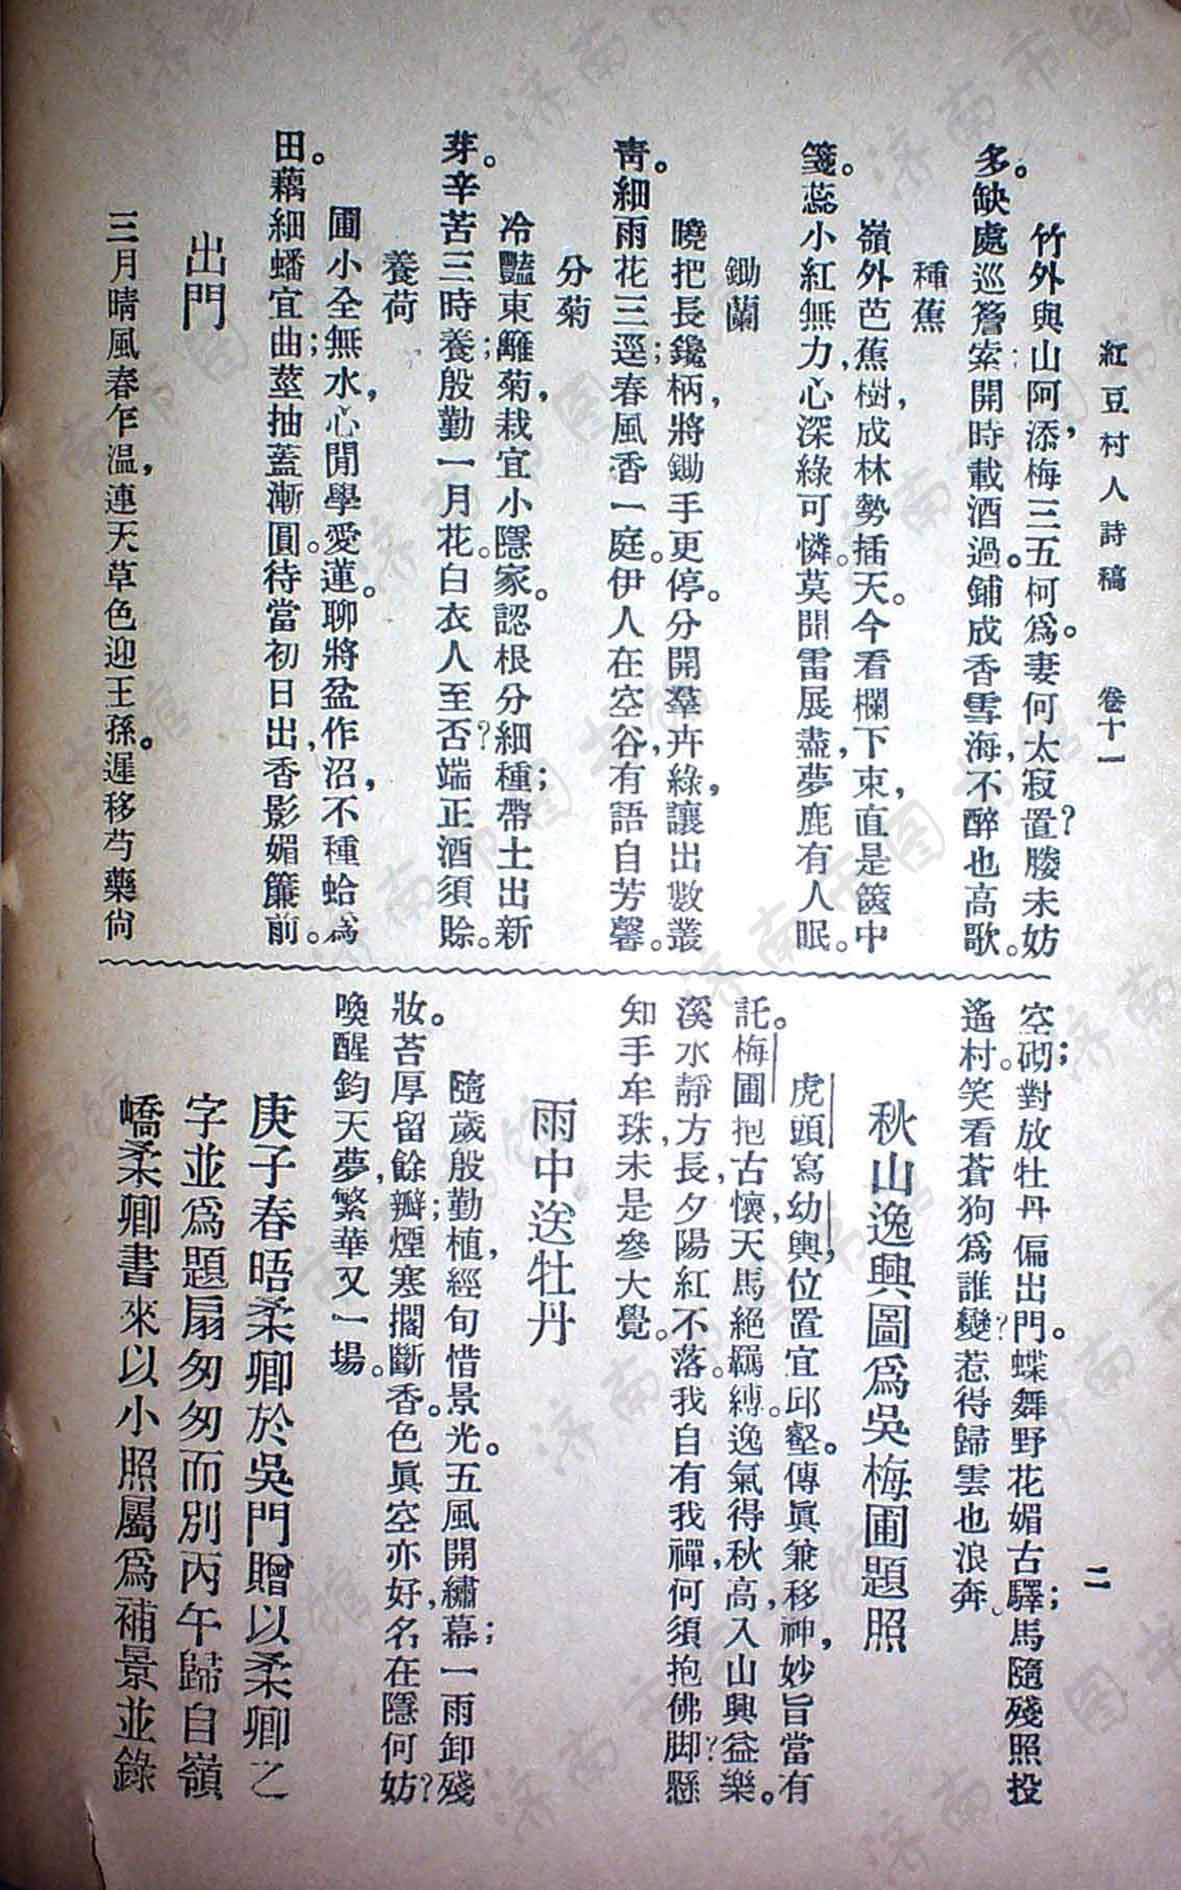 紅豆村人詩稿　卷十一　二
竹外與山阿，添梅三五柯。爲妻何太寂？置媵未妨
多。缺處巡簷索；開時載酒過。鋪成香雪海，不醉也高歌。
種蕉
嶺外芭蕉樹，成林勢插天。今看欄下束，直是篋中
箋。蕊小紅無力，心深綠可憐。莫聞雷展盡，夢鹿有人眠。
鋤蘭
曉把長鑱柄，將鋤手更停。分開羣卉綠，讓出數叢
靑。細雨花三逕；春風香一庭。伊人在空谷，有語自芳馨。
分菊
冷豔東籬菊，栽宜小隱家。認根分細種；帶土出新
芽。辛苦三時養；殷勤一月花。白衣人至否？端正酒須賒。
養荷
圃小全無水，心閒學愛蓮。聊將盆作沼，不種蛤爲
田。藕細蟠宜曲；莖抽蓋漸圓。待當初日出，香影媚簾前。
出門
三月晴風春乍温，連天草色迎王孫。遲移芍藥尙
空砌；對放牡丹偏出門。蝶舞野花媚古驛；馬隨殘照投
遙村。笑看蒼狗爲誰變？惹得歸雲也浪奔。
秋山逸興圖爲吳梅圃題照
虎頭寫幼輿，位置宜邱壑。傳眞兼移神，妙旨當有
託。梅圃抱古懷，天馬絕羈縛。逸氣得秋高，入山興益樂。
溪水靜方長，夕陽紅不落。我自有我禪，何須抱佛脚？懸
知手牟珠，未是參大覺。
雨中送牡丹
隨歲殷勤植，經旬惜景光。五風開繡幕；一雨卸殘
妝。苔厚留餘瓣；煙寒擱斷香。色眞空亦好，名在隱何妨？
喚醒鈞天夢，繁華又一場。
庚子春晤柔卿於吳門贈以柔卿之
字並爲題扇匆匆而別丙午歸自嶺
嶠柔卿書來以小照屬爲補景並錄